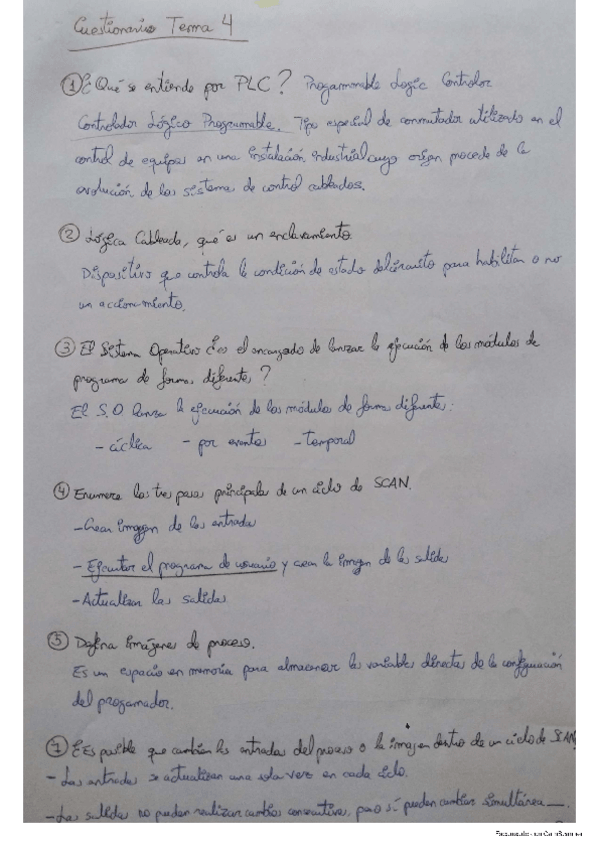 Cuestionario Tema 4
① ¿Qué se entiende por PLC? Programmable Logic Controlor
Controlador Lógico Programable. Tipo especial de conmutador utilizado en el
control de equipos en una instalación industrial cuyo origen procede de la
evolución de los sistemas de control cableados.
② Lógica Cableada, qué es un enclavamiento.
Dispositivo que controla la condición de estado del circuito para habilitar o no
un accionamiento.
③ El Sistema Operativo ¿es el encargado de lanzar la ejecución de los módulos de
programa de formas diferentes?
El S.O lanza la ejecución de los módulos de forma diferente:
- cíclica - por eventos - temporal
④ Enumera los tres pasos principales de un ciclo de SCAN.
- Crear imagen de las entradas
- Ejecutar el programa de usuario y crear la imagen de la salida
- Actualizar las salidas
⑤ Defina imágenes de proceso.
Es un espacio en memoria para almacenar las variables directas de la configuración
del programador.
⑦ ¿Es posible que cambien las entradas del proceso o la imagen dentro de un ciclo de SCAN?
- Las entradas se actualizan una sola vez en cada ciclo.
- Las salidas no pueden realizar cambios consecutivos, pero sí pueden cambiar simultánea